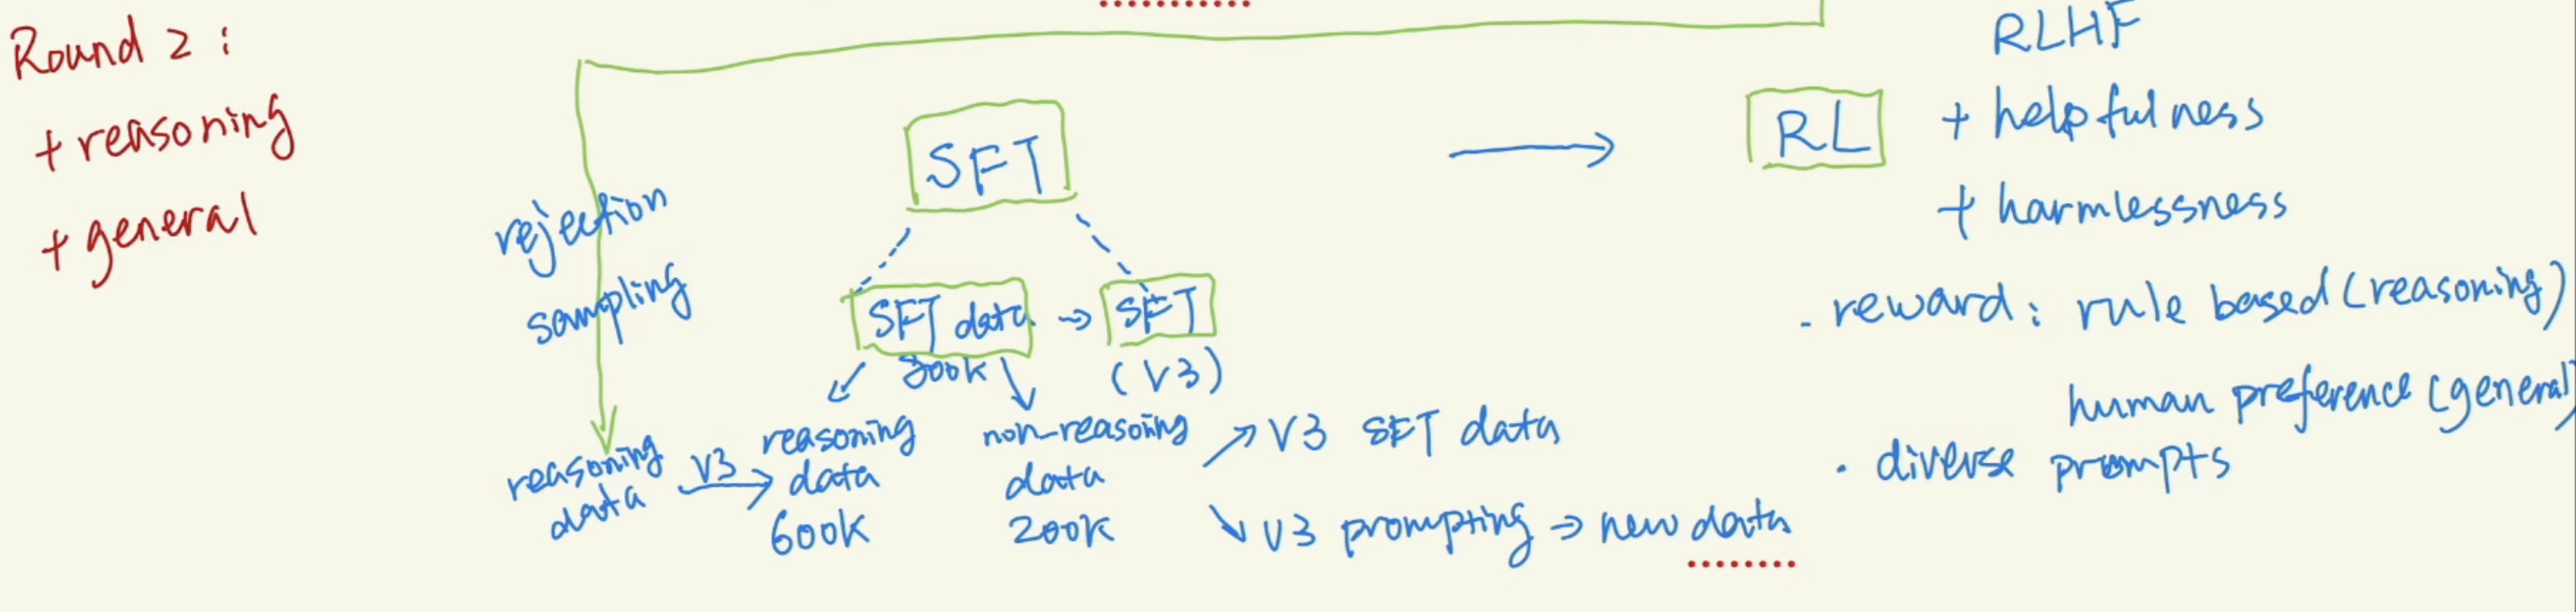 Round 2:
+ reasoning
+ general
rejection
sampling
reasoning
data
V3
SFT
SFT data
800k
SFT
(V3)
reasoning
data
600k
non-reasoning
data
200k
V3 SFT data
V3 prompting → new data
RL
RLHF
+ helpfulness
+ harmlessness
- reward: rule based (reasoning)
human preference (general)
· diverse prompts